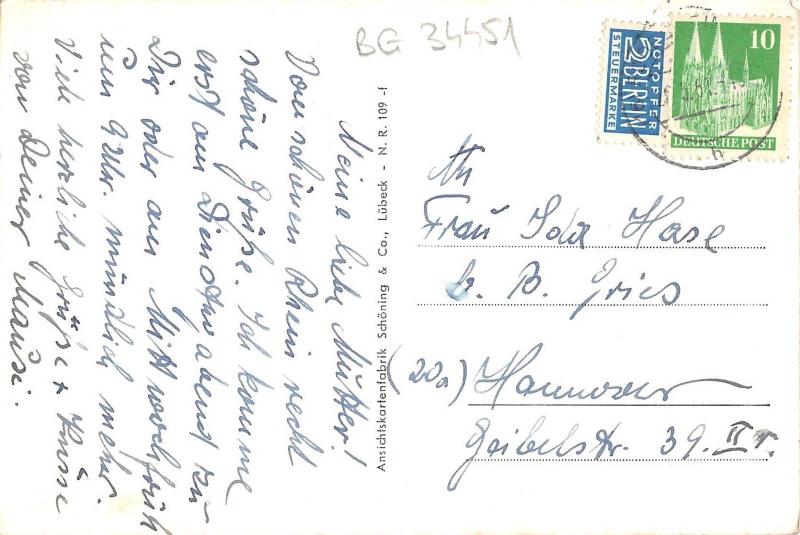 BG 34451
Meine liebe Mutter!
Vom schönen Rhein recht
schöne Grüße. Ich komme
erst am Dienstag abend zu
Dir oder am Mittwoch früh
um 9 Uhr. mündlich mehr.
Viele herzliche Grüße + Küsse
von Deiner Mausi.
Ansichtskartenfabrik Schöning & Co., Lübeck - N. R. 109 -f
NOTOPFER
2 BERLIN
STEUERMARKE
10
DEUTSCHE POST
h
An
Frau Ida Hase
b. B. Gries
(20a) Hannover
Geibelstr. 39. II r.